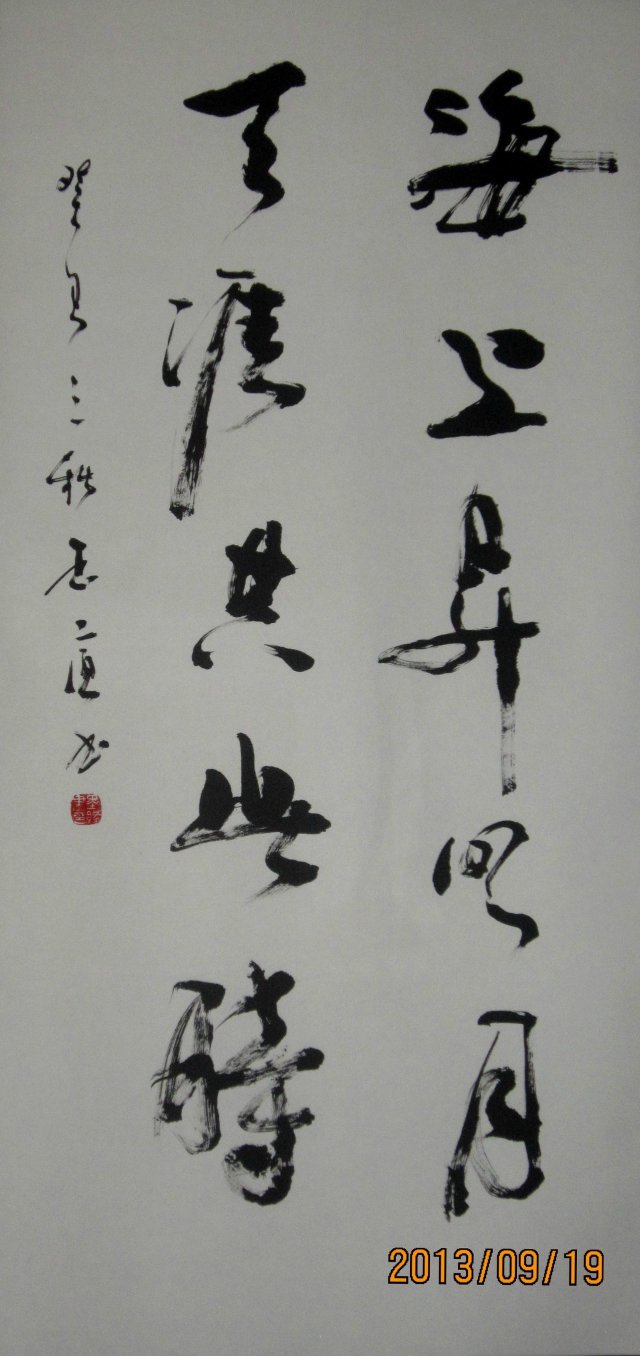 海上昇明月
天涯共此時
癸巳三秋
書
2013/09/19